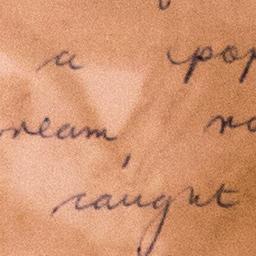 a pop
ream, no
caught